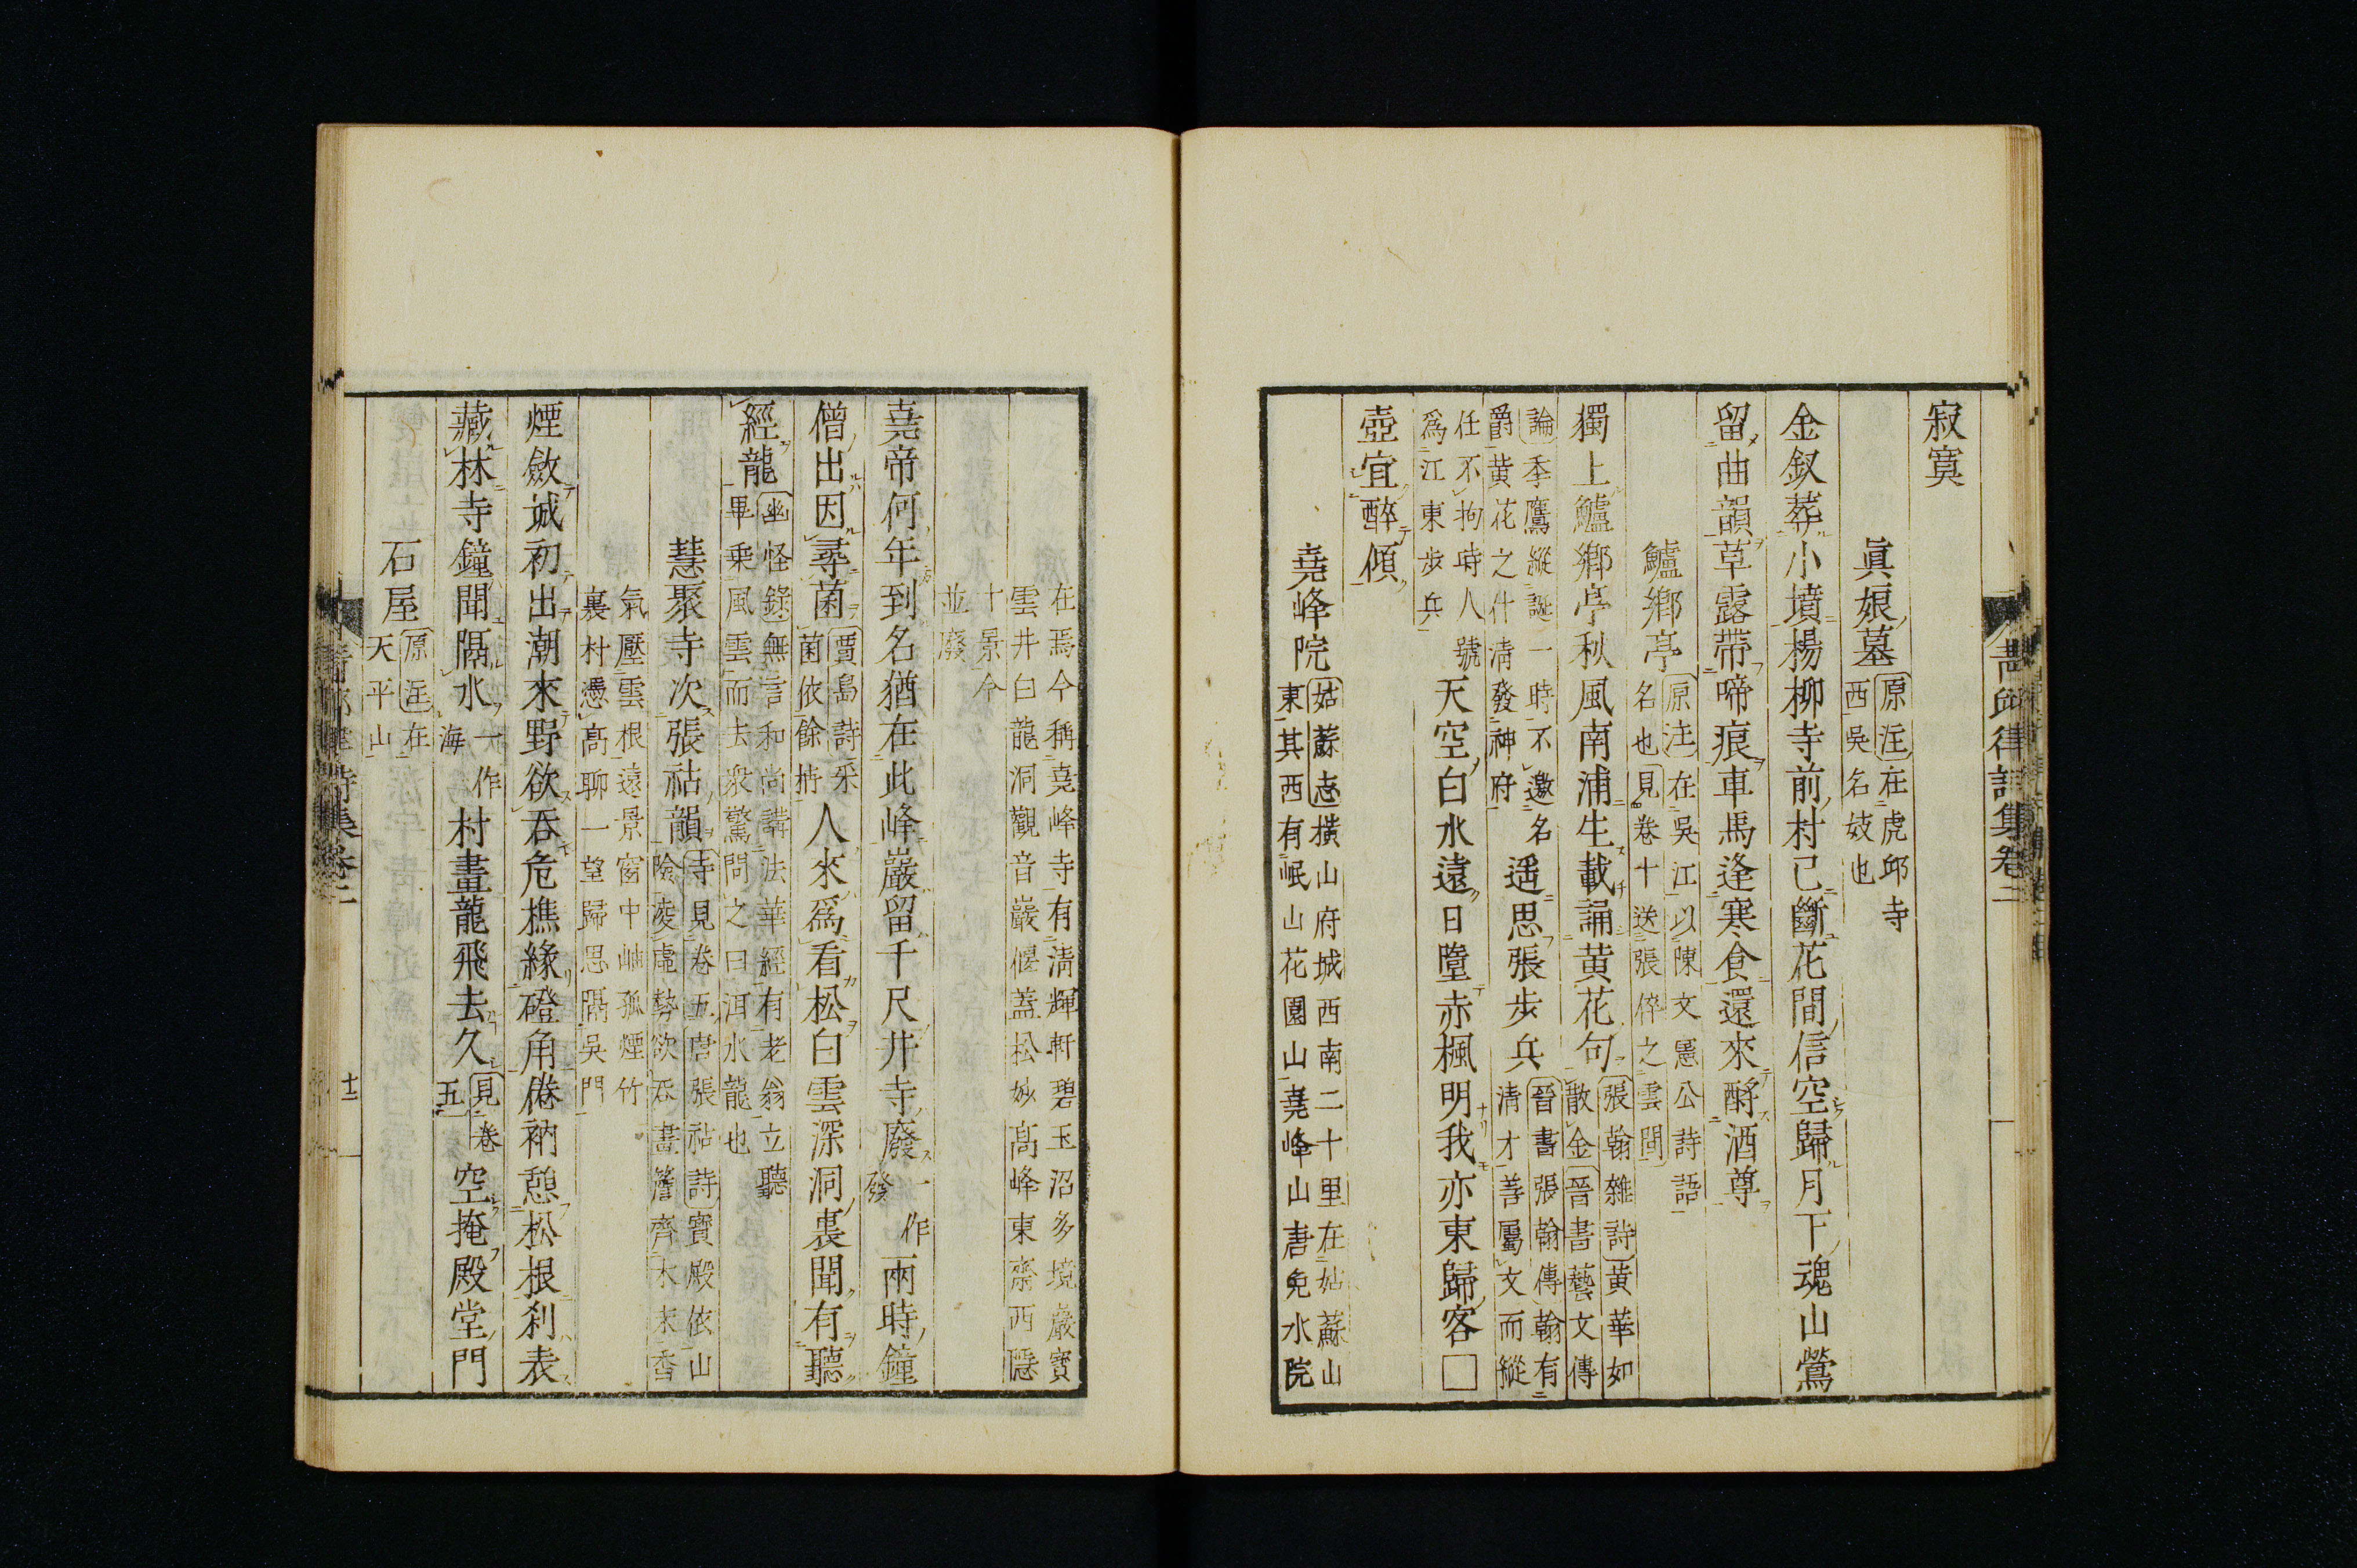 寂寞
眞娘墓
原注在虎邱寺
西吳名妓也
金釵葬小墳楊柳寺前村已斷花間信空歸月下魂山鶯
留曲韻草露帶啼痕車馬逢寒食還來酹酒尊
鱸鄉亭
原注在吳江以陳文惠公詩語
名也見卷十送張倅之雲間
獨上鱸鄉亭秋風南浦生載誦黃花句
張翰雜詩黃華如
散金晉書藝文傳
論季鷹縱誕一時不邀名
爵黃花之什清發神府
遥思張步兵
晉書張翰傳翰有
清才善屬文而縱
任不拘時人號
爲江東步兵
天空白水遠日墮赤楓明我亦東歸客□
壺宜醉傾
堯峰院
姑蘇志橫山府城西南二十里在姑蘇山
東其西有岷山花園山堯峰山唐免水院
在焉今稱堯峰寺有清輝軒碧玉沼多境巖寶
雲井白龍洞觀音巖偃蓋松妙高峰東齋西隱
十景今
並廢
堯帝何年到名猶在此峰巖留千尺井寺廢
一作
發
兩時鐘
僧出因尋菌
賈島詩采
菌依餘枿
人來爲看松白雲深洞裏聞有聽
經龍
幽怪錄無言和尚講法華經有老翁立聽
畢乘風雲而去衆驚問之曰洱水龍也
慧聚寺次張祜韻
寺見卷五唐張祜詩寶殿依山
險凌虛勢欲吞畫簷齊木末香
氣壓雲根遠景窗中岫孤煙竹
裏村憑高聊一望歸思隔吳門
煙斂城初出潮來野欲吞危樵緣磴角倦衲憩松根刹表
藏林寺鐘聞隔水
一作
海
村畫龍飛去久
見卷
五
空掩殿堂門
石屋
原注在
天平山
十二